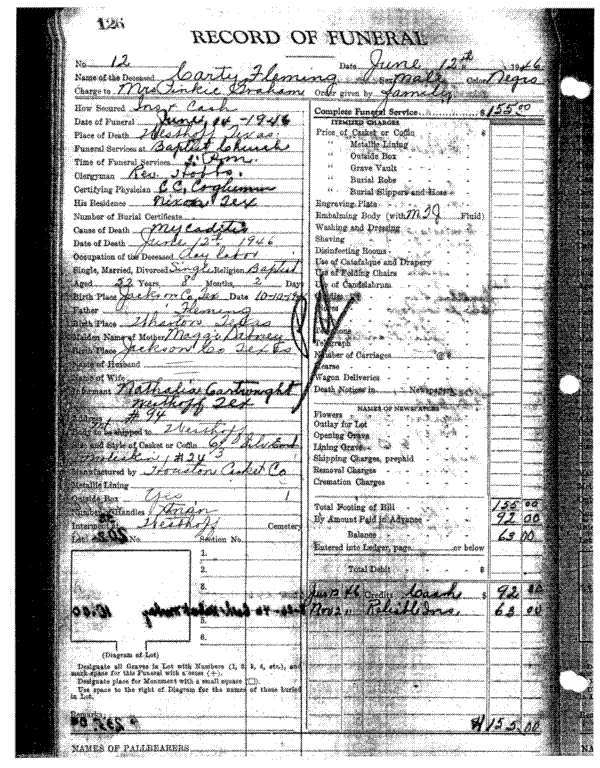 126
RECORD OF FUNERAL
No. 12 Date June 12th 1946
Name of the Deceased Carty Fleming Sex Male Color Negro
Charge to Mrs Pinkie Graham Order given by family
How Secured Ins & Cash
Date of Funeral June 14 - 1946
Place of Death Westhoff Texas
Funeral Services at Baptist Church
Time of Funeral Services P.m.
Clergyman Rev. Hobbs
Certifying Physician C.C.
His Residence Nixon Tex
Number of Burial Certificate
Cause of Death Mycaditis
Date of Death June 12th 1946
Occupation of the Deceased Day labor
Single, Married, Divorced Single Religion Baptist
Aged Years, 8 Months, 2 Days
Birth Place Jackson Co. Tex Date
Father Fleming
Birth Place Wharton Texas
Maiden Name of Mother Maggie
Birth Place Jackson Co Texas
Name of Husband
Name of Wife
Nathalia Cartwright
Westhoff Tex
#94
to be shipped to Westhoff
Size and Style of Casket or Coffin
Moleskin #24
Manufactured by Houston Casket Co
Metallic Lining
Outside Box Yes 1
Number Handles
Interment Westhoff Cemetery
Lot No. Section No.
1.
2.
3.
5.
6.
(Diagram of Lot)
Designate all Graves in Lot with Numbers (1, 2, 3, 4, etc.), and
mark space for this Funeral with a cross (+).
Designate place for Monument with a small square (□).
Use space to the right of Diagram for the names of those buried
in Lot.
NAMES OF PALLBEARERS
Complete Funeral Service $ 155 00
ITEMIZED CHARGES
Price of Casket or Coffin $
" Metallic Lining
" Outside Box
" Grave Vault
" Burial Robe
" Burial Slippers and Hose
Engraving Plate
Embalming Body (with Fluid)
Washing and Dressing
Shaving
Disinfecting Rooms
Use of Catafalque and Drapery
Use of Folding Chairs
Use of Candelabrum
Candles
Gloves
Telegraph
Number of Carriages @ $
Hearse
Wagon Deliveries
Death Notices in Newspapers
NAMES OF NEWSPAPERS
Flowers
Outlay for Lot
Opening Grave
Lining Grave
Shipping Charges, prepaid
Removal Charges
Cremation Charges
Total Footing of Bill 155 00
By Amount Paid in Advance 92 00
Balance 63 00
Entered into Ledger, page or below
Total Debit $
Jun 12 46 Credits Cash $ 92 00
Nov 2 " Reliable Ins. 63 00
$155.00